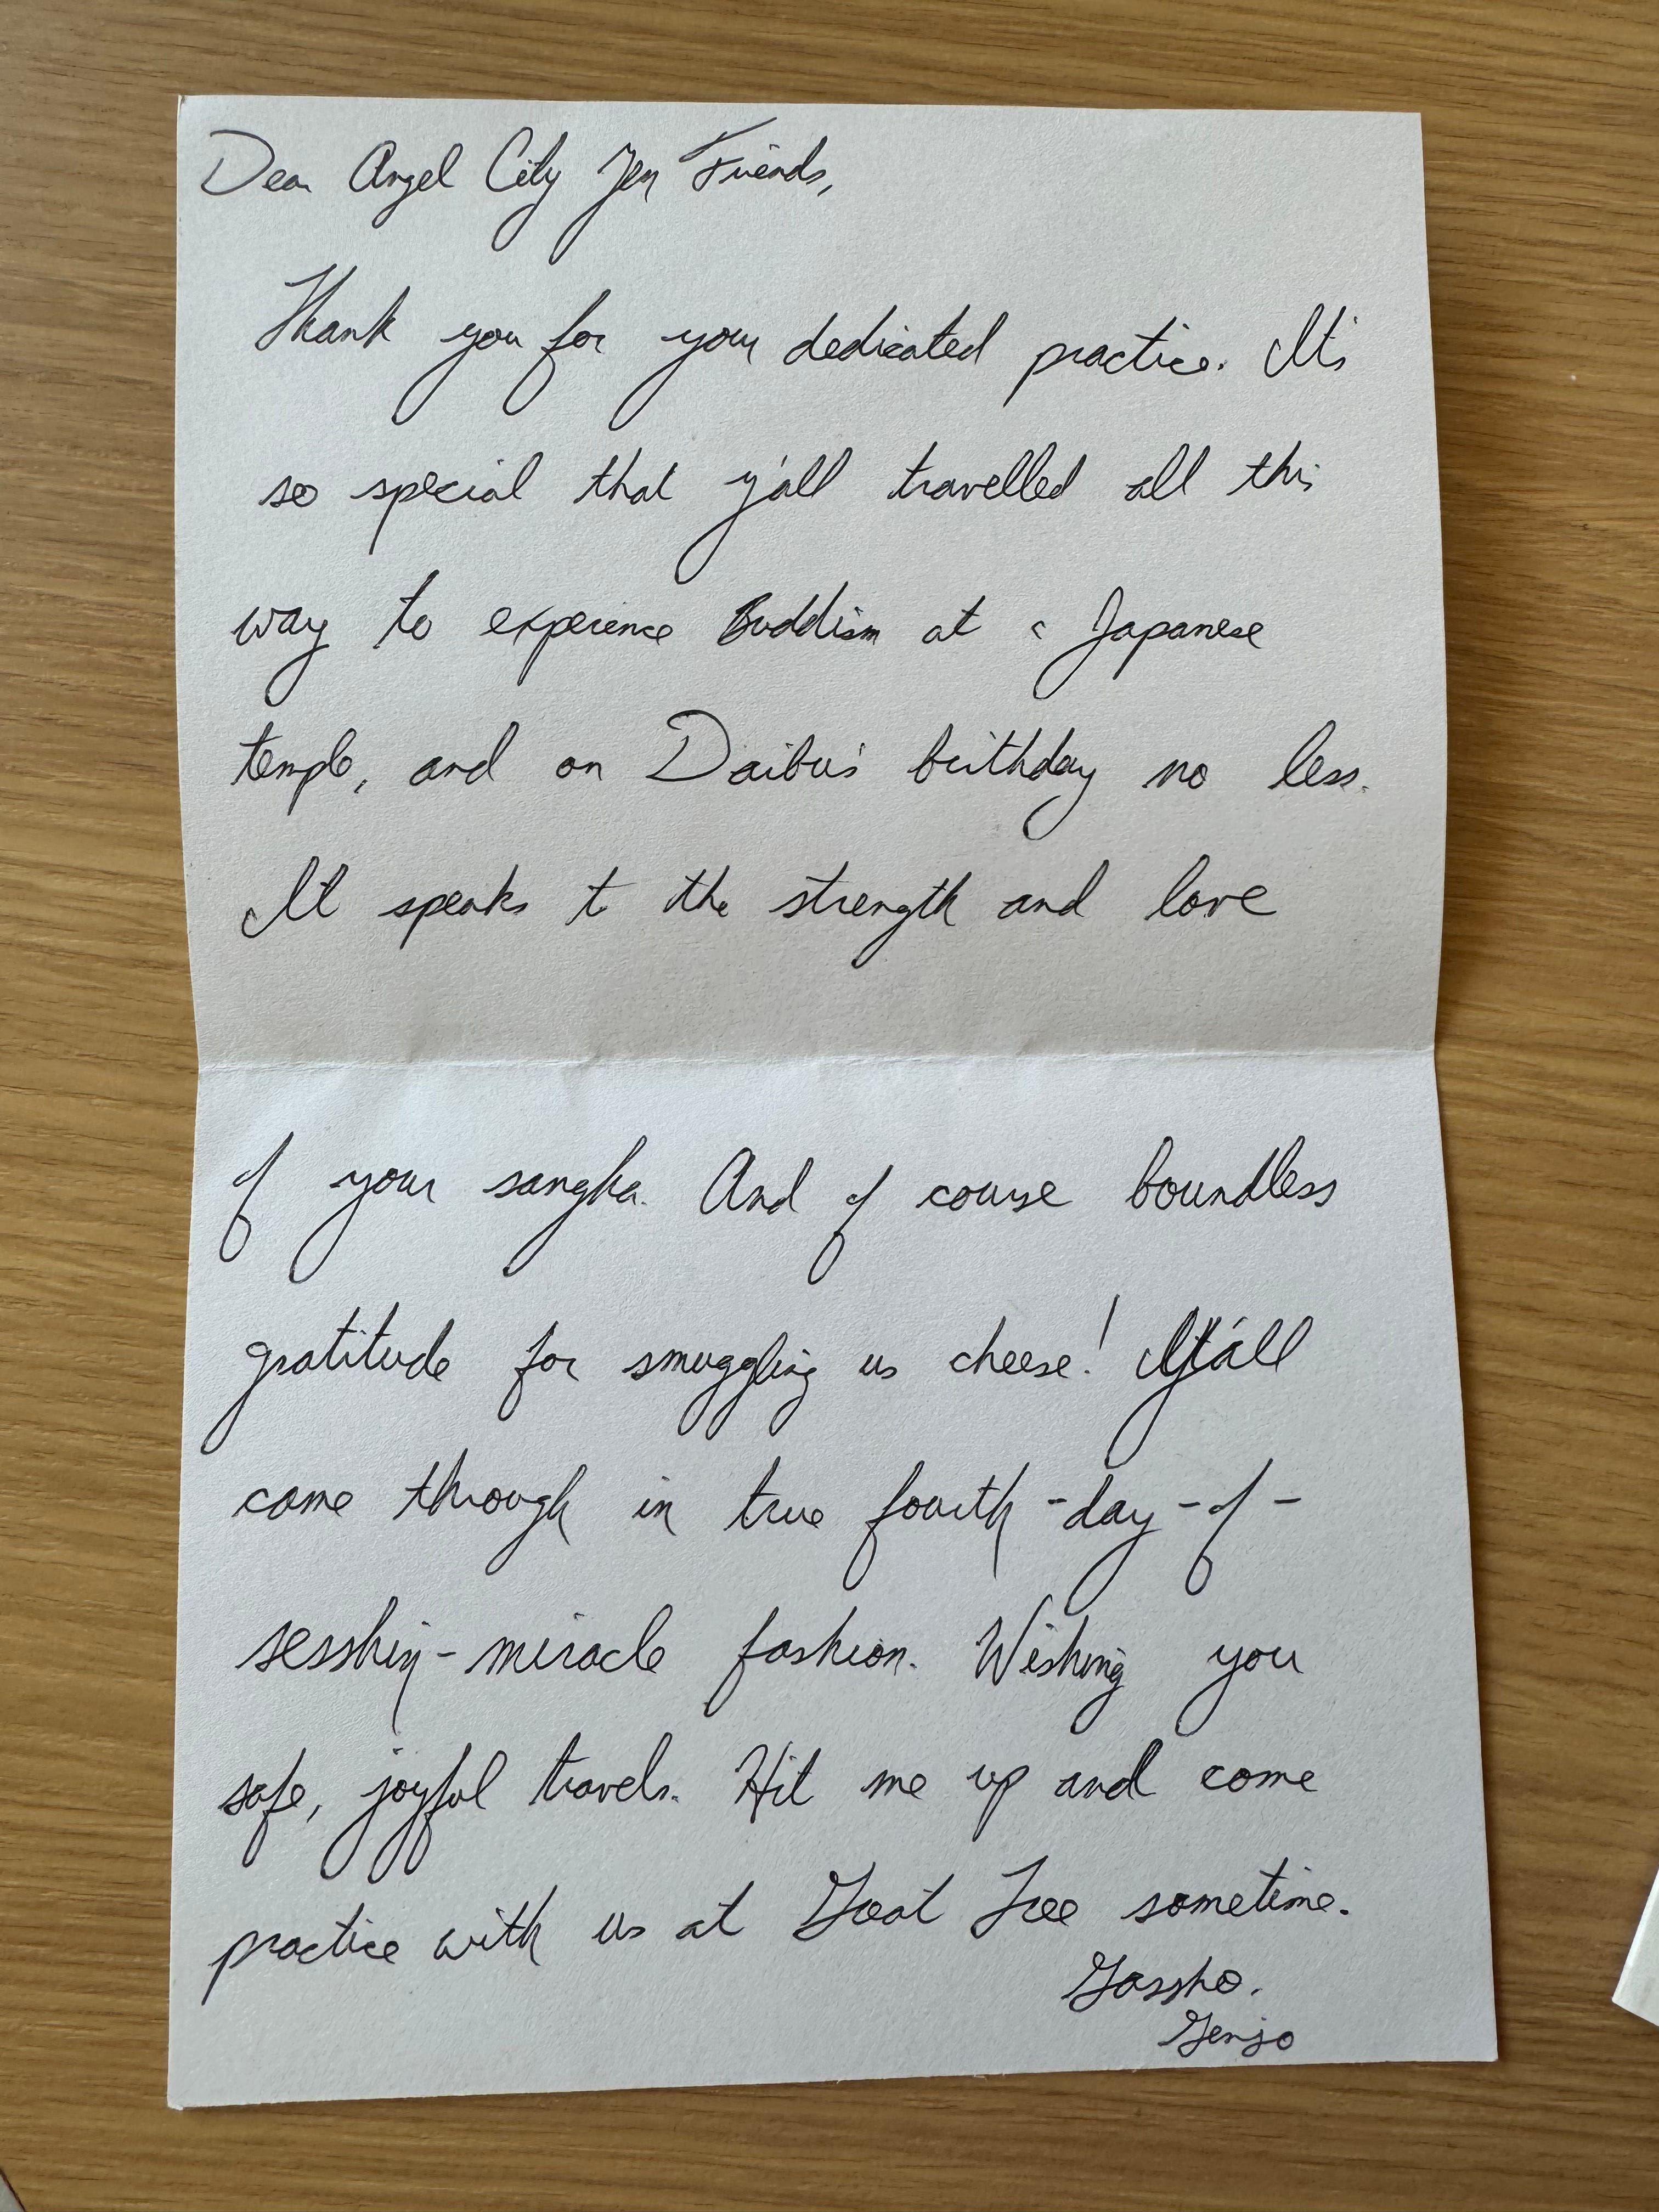 Dear Angel City Zen Friends,
Thank you for your dedicated practice. It's
so special that y'all travelled all this
way to experience Buddism at a Japanese
temple, and on Daibu's birthday no less.
It speaks to the strength and love
of your sangha. And of course boundless
gratitude for smuggling us cheese! Y'all
came through in true fourth-day-of-
sesshin-miracle fashion. Wishing you
safe, joyful travels. Hit me up and come
practice with us at Great Tree sometime.
Gassho.
Genjo